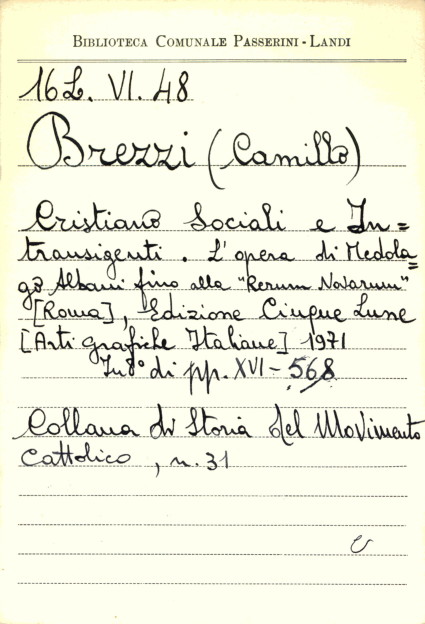 BIBLIOTECA COMUNALE PASSERINI-LANDI
16L. VI. 48
Brezzi (Camillo)
Cristiano Sociali e In=
transigenti. L'opera di Medola=
go Albani fino alla "Rerum Novarum"
[Roma], Edizione Cinque Lune
[Arti grafiche Italiane] 1971
In 8° di pp. XVI-568
Collana di Storia del Movimento
Cattolico, n. 31